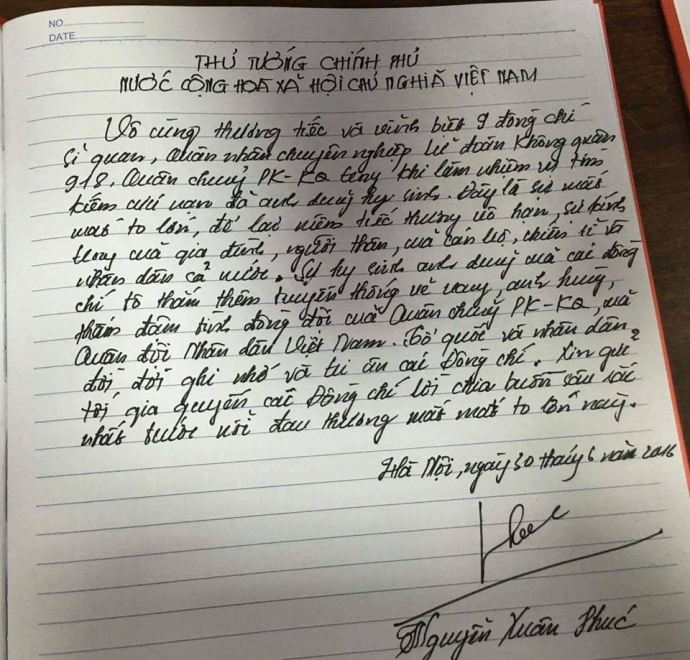 NO.
DATE
THỦ TƯỚNG CHÍNH PHỦ
NƯỚC CỘNG HOÀ XÃ HỘI CHỦ NGHĨA VIỆT NAM
Vô cùng thương tiếc và vĩnh biệt 9 đồng chí
sĩ quan, Quân nhân chuyên nghiệp Lữ đoàn Không quân
918, Quân chủng PK-KQ trong khi làm nhiệm vụ tìm
kiếm cứu nạn đã anh dũng hy sinh. Đây là sự mất
mát to lớn, để lại niềm tiếc thương vô hạn, sự kính
trọng của gia đình, người thân, của cán bộ, chiến sĩ và
nhân dân cả nước. Sự hy sinh anh dũng của các đồng
chí tô thắm thêm truyền thống vẻ vang, anh hùng,
thắm đậm tình đồng đội của Quân chủng PK-KQ, của
Quân đội Nhân dân Việt Nam. Tổ quốc và nhân dân
đời đời ghi nhớ và tri ân các Đồng chí. Xin gửi
tới gia quyến các Đồng chí lời chia buồn sâu sắc
nhất trước nỗi đau thương mất mát to lớn này.
Hà Nội, ngày 30 tháng 6 năm 2016
Nguyễn Xuân Phúc